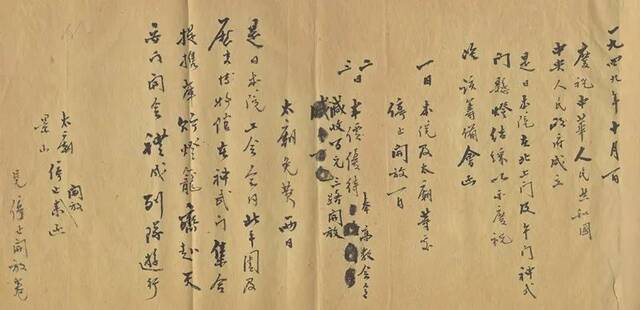 一九四九年十月一日
慶祝中華人民共和國
中央人民政府成立
是日本院在北上門及午門神武
門懸燈結綵以示慶祝
從該籌備會函
一日 本院及太廟等宗
停止開放一日
二三日 半價優待
減收百元 路開放
太廟免費兩日
是日本院工會會同北平圖及
歷史博物館在神武門集合
提攜庫存燈籠齊赴天
安門開會禮成列隊遊行
太廟 開放
景山 停止來函
見停止開放卷